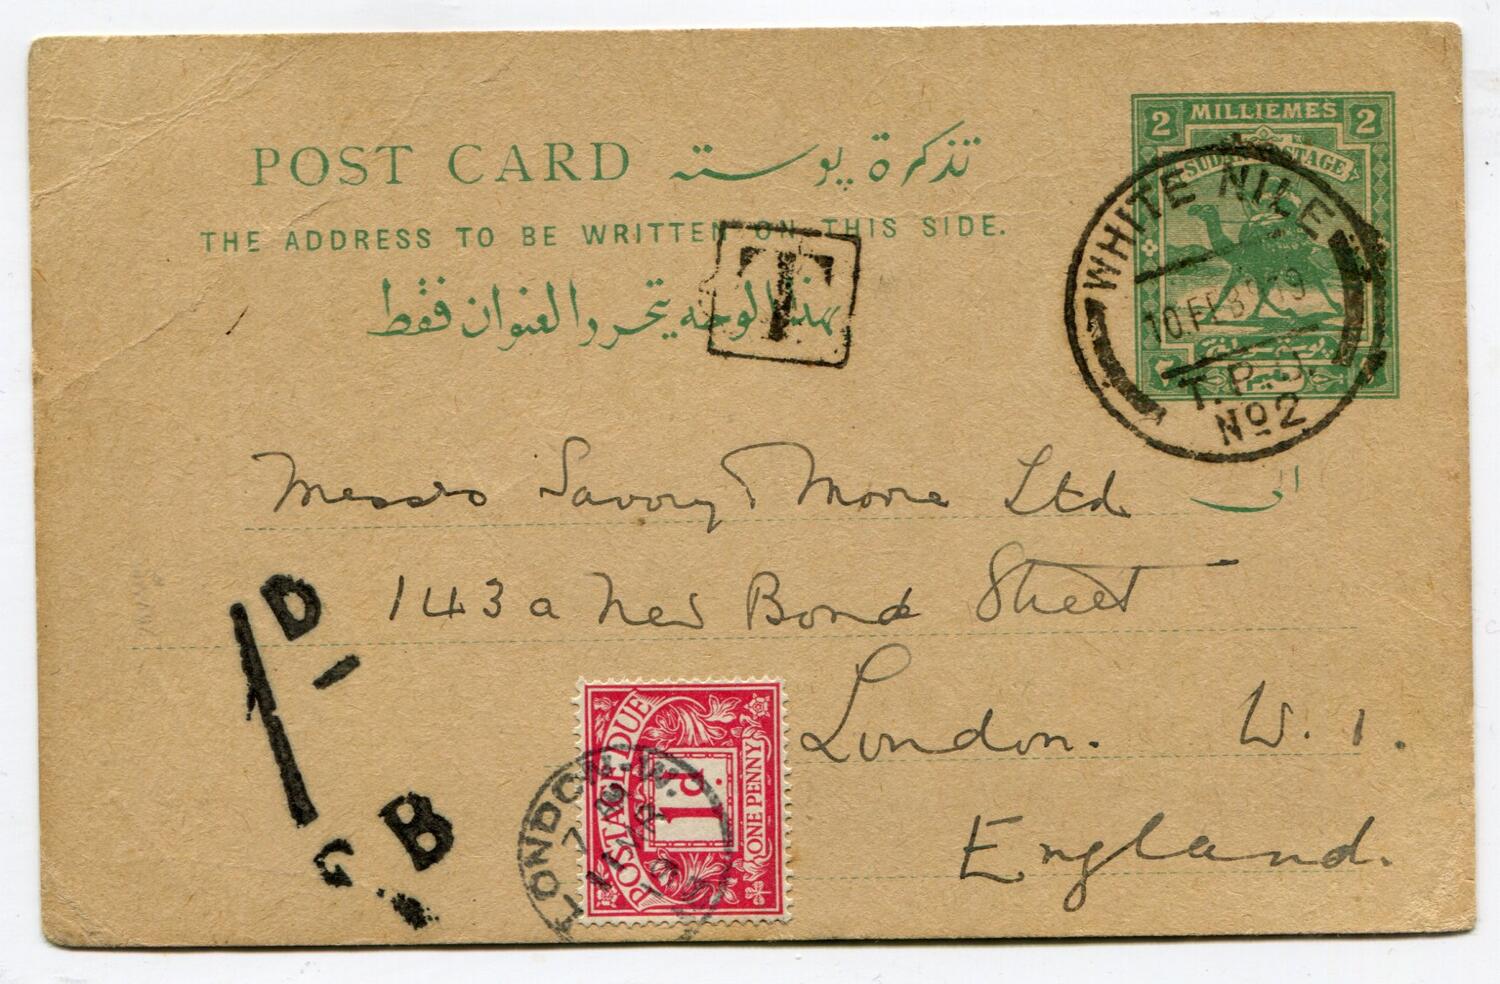 2 MILLIEMES 2
SUDAN POSTAGE
POST CARD تذكرة پوسته
WHITE NILE
THE ADDRESS TO BE WRITTEN ON THIS SIDE.
T
10 FEB
بهذا الوجه يتحروا العنوان فقط
T.P.O.
No 2
Messrs Savory & Moore Ltd
الى
143a New Bond Street
1D
London. W. 1.
POSTAGE DUE
1d.
ONE PENNY
LONDON. W.
GB
England.